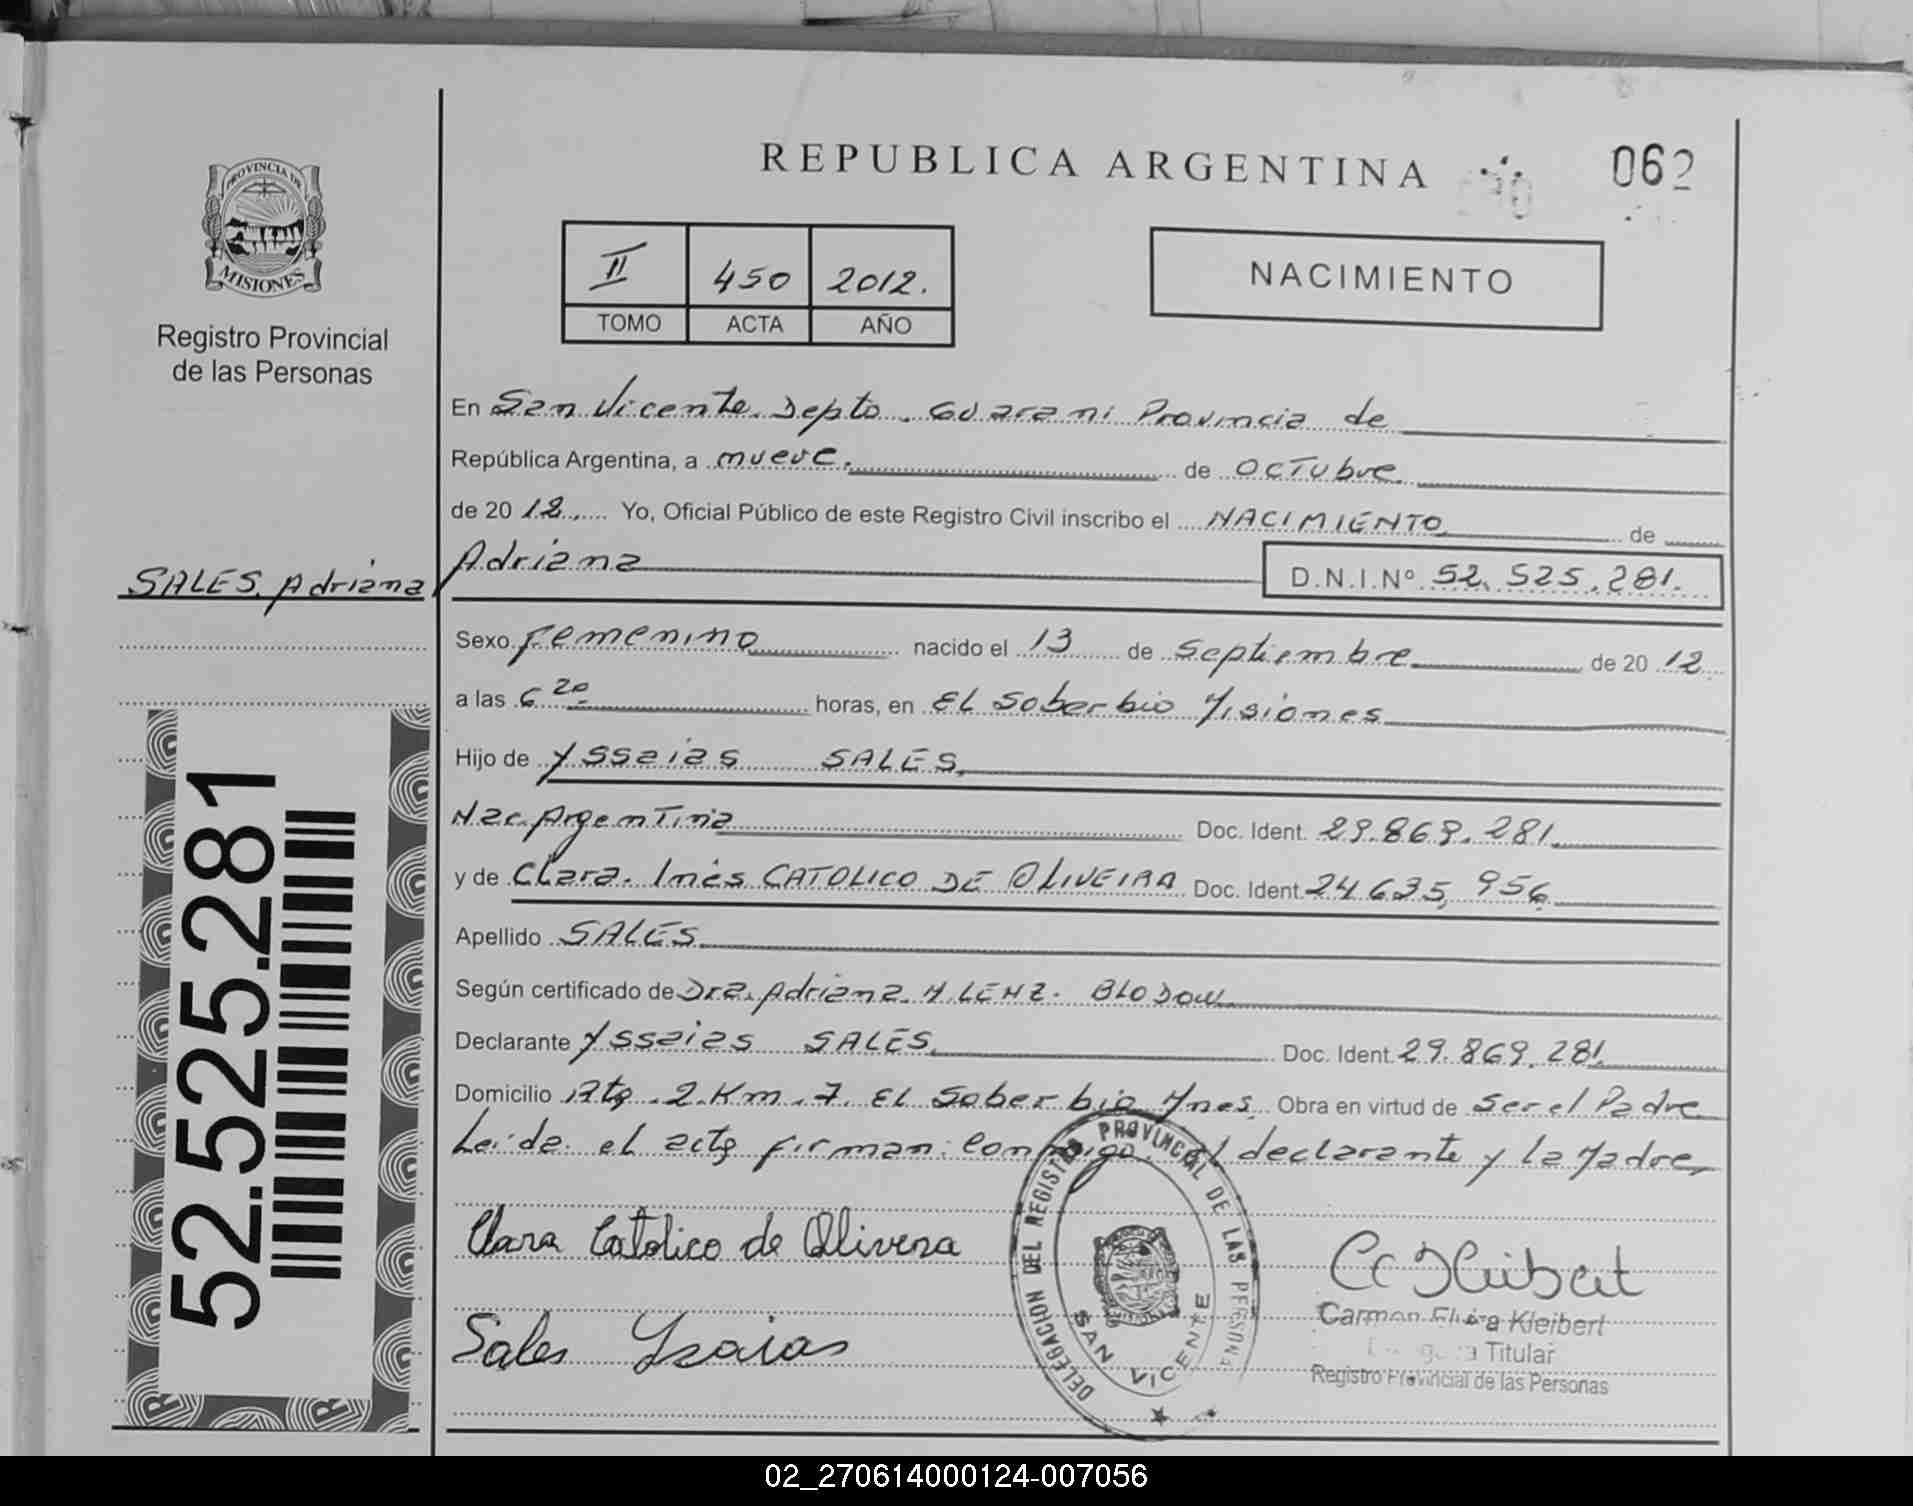 REPUBLICA ARGENTINA
062
PROVINCIA DE
MISIONES
Registro Provincial
de las Personas
II 450 2012.
TOMO ACTA AÑO
NACIMIENTO
En San Vicente Depto. Guarani Provincia de
República Argentina, a nueve. de Octubre.
de 2012. Yo, Oficial Público de este Registro Civil inscribo el NACIMIENTO de
SALES, Adriana
Adriana
D.N.I.Nº 52.525.281.
Sexo Femenino nacido el 13 de Septiembre de 2012
a las 6 20 horas, en El Soberbio Misiones
Hijo de Yssaias SALES,
Nac. Argentina Doc. Ident. 29.869.281.
y de Clara. Inés CATOLICO DE OLIVEIRA Doc. Ident. 24.635,956
Apellido SALES
Según certificado de Dra. Adriana M. LENZ. BLODOW
Declarante Yssaias SALES Doc. Ident. 29.869.281
Domicilio Rta. 2. Km. 7. El Soberbio Mnes. Obra en virtud de Ser el Padre
Leida el acta firman conmigo el declarante y la Madre,
Clara Catolico de Olivera
Sales Ysaias
DELEGACION DEL REGISTRO PROVINCIAL DE LAS PERSONAS
SAN VICENTE
Carmen Elvira Kleibert
Titular
Registro Provincial de las Personas
52.525.281
02_270614000124-007056